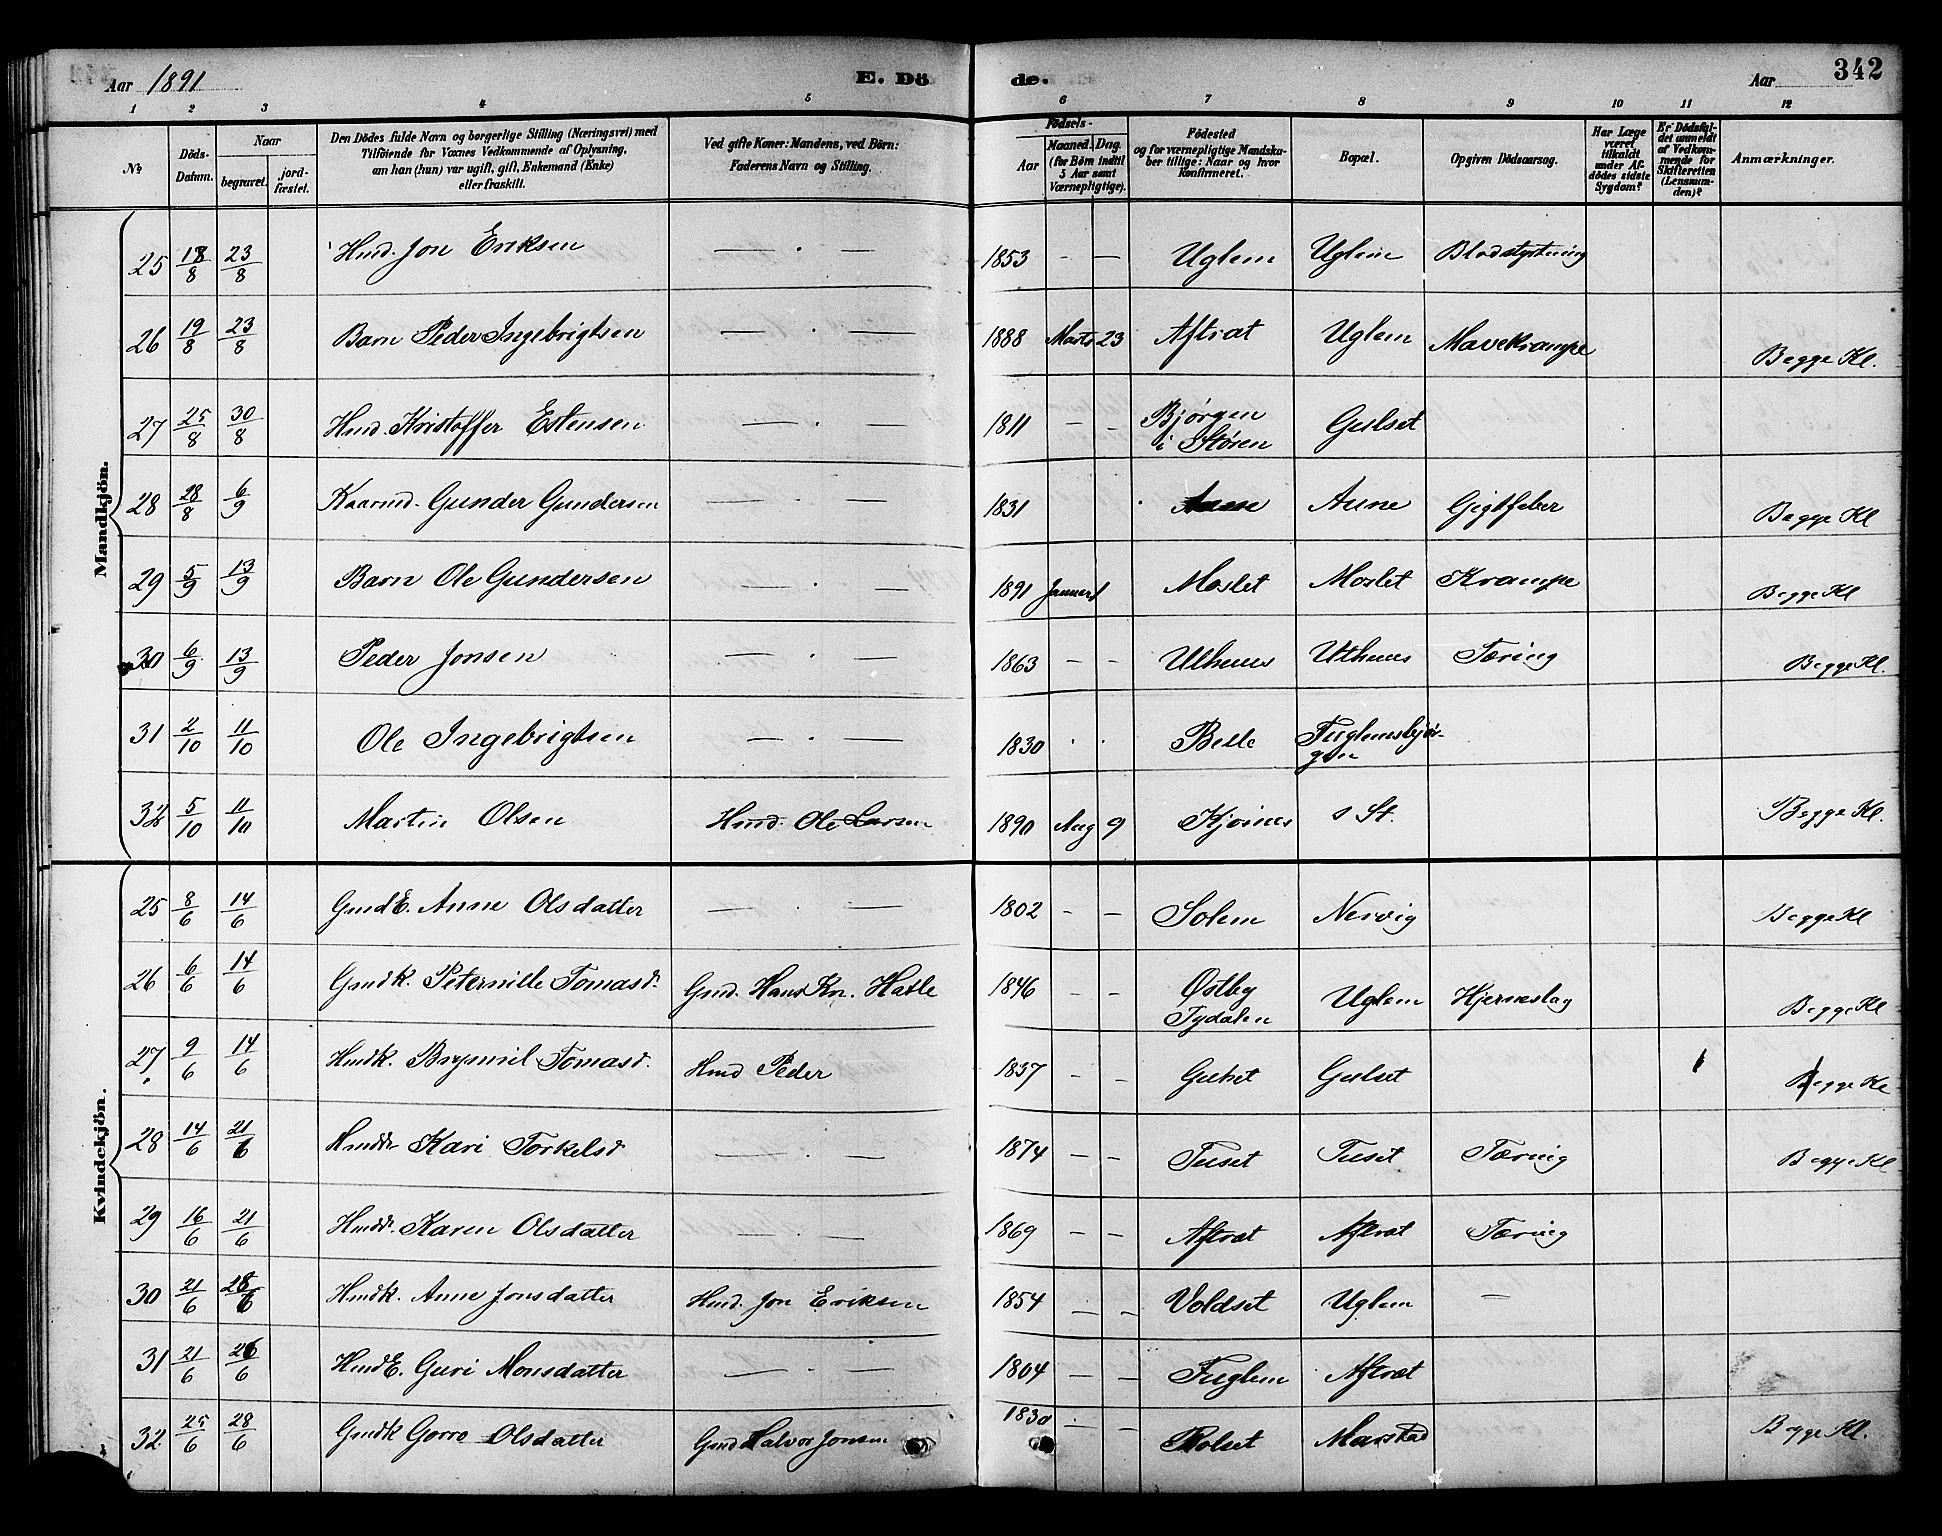 Aar 1891 E. Dö de. Aar 342
1 2 3 4 5 6 7 8 9 10 11 12
№
Döds-Datum.
Naar begravet. jordfæstet.
Den Dödes fulde Navn og borgerlige Stilling (Næringsvei) med Tilföiende for Voxnes Vedkommende af Oplysning, om han (hun) var ugift, gift, Enkemand (Enke) eller fraskilt.
Ved gifte Koner: Mandens, ved Börn: Faderens Navn og Stilling.
Födsels- Aar Maaned. Dag. (for Börn indtil 5 Aar samt Værnepligtige).
Födested og for værnepligtige Mandskaber tillige: Naar og hvor konfirmeret.
Bopæl.
Opgiven Dödsaarsag.
Har Læge været tilkaldt under Afdödes sidste Sygdom?
Er Dödsfaldet anmeldt af Vedkommende for Skifteretten (Lensmanden)?
Anmærkninger.
Mandkjön.
25 18/8 23/8 Hmd. Jon Eriksen — . — 1853 - — Uglem Uglem Blodstyrtning
26 19/8 23/8 Barn Peder Ingebrigtsen — . — 1888 Marts 23 Aftræt Uglem Mavekrampe Begge Kl.
27 25/8 30/8 Hmd. Kristoffer Estensen — . — 1811 - - Bjørgen i Støren Gulset
28 28/8 6/9 Kaarmd. Gunder Gundersen — — 1831 Aune Aune Gigtfeber Begge Kl
29 5/9 13/9 Barn Ole Gundersen — . — 1891 Januar 1 Moslet Moslet Krampe Begge Kl
30 6/9 13/9 Peder Jonsen — . — 1863 - - Uthuus Uthuus Tæring Begge Kl.
31 2/10 11/10 Ole Ingebrigtsen — . — 1830 . . Belle Fuglemsbjørgen
32 5/10 11/10 Martin Olsen Hmd. Ole Larsen 1890 Aug 9 Kjøsnes s St. Begge Kl.
Kvindekjön.
25 8/6 14/6 GmdE. Anne Olsdatter — . — 1802 - - Solem Nervig Begge Kl
26 6/6 14/6 Gmdk. Peternille Tomasd. Gmd. Hans Kn. Hasle 1846 - - Østby Tydalen Uglem Hjerneslag Begge Kl
27 9/6 14/6 Hmdk. Brynnil Tomasd. Hmd Peder 1837 - - Gulset Gulset 1 Begge Kl
28 14/6 21/6 Hmddr Kari Torkelsd — . — 1874 - - Tuset Tuset Tæring Begge Kl
29 16/6 21/6 Hmdd. Karen Olsdatter — . — 1869 - - Aftræt Aftræt Tæring
30 21/6 28/6 Hmdk. Anne Jonsdatter Hmd. Jon Eriksen 1854 - - Voldset Uglem -
31 21/6 26/6 HmdE. Guri Monsdatter — . — 1804 - - Fuglem Aftræt
32 25/6 28/6 Gmdk Gorro Olsdatter Gmd Halvor Jonsen 1830 - - Rolset Marstad Begge Kl.